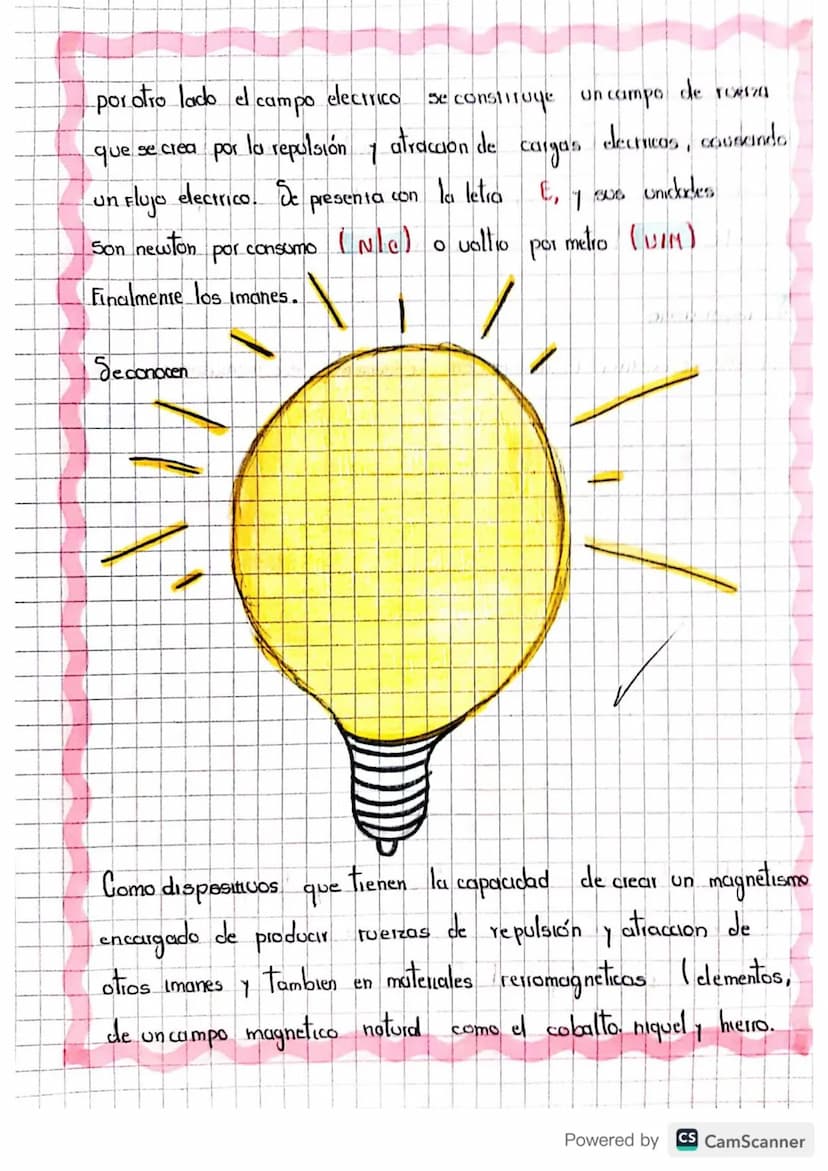 por otro lado el campo electrico se constituye un campo de fuerza
que se crea por la repulsión y atraccion de cargas electricas, causando
un flujo electrico. Se presenta con la letra E, y sus unidades
Son newton por consumo (N/c) o voltio por metro (V/M)
Finalmente los imanes.
Se conocen
Como dispositivos que tienen la capacidad de crear un magnetismo
encargado de producir fuerzas de repulsión y atraccion de
otros imanes y tambien en materiales ferromagneticas (elementos,
de un campo magnetico natural como el cobalto. niquel y hierro.
Powered by CS CamScanner